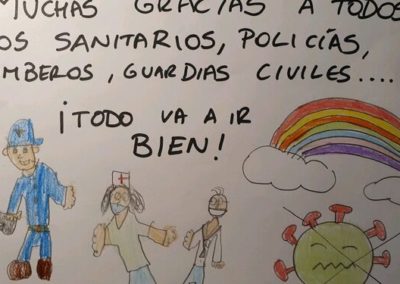 MUCHAS GRACIAS A TODOS
OS SANITARIOS, POLICÍAS,
MBEROS, GUARDIAS CIVILES....
¡TODO VA A IR
BIEN!